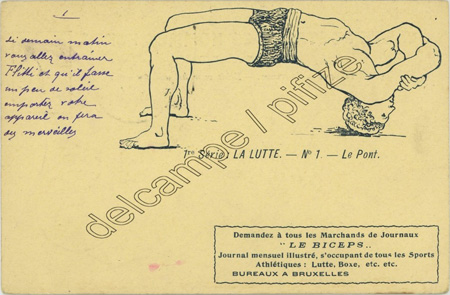 1
Si demain matin
vous allez entrainer
et qu'il fasse
un peu de soleil
emportez votre
appareil on fera
des merveilles
1re Série: LA LUTTE. — No 1. — Le Pont.
delcampe / pifize
Demandez à tous les Marchands de Journaux
"LE BICEPS„
Journal mensuel illustré, s'occupant de tous les Sports
Athlétiques : Lutte, Boxe, etc. etc.
BUREAUX A BRUXELLES